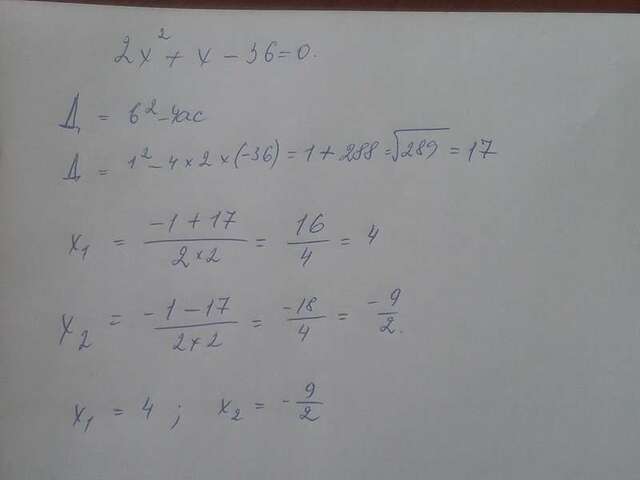 2x² + x - 36 = 0.
Д = b² - 4ac
Д = 1² - 4 × 2 × (-36) = 1 + 288 = √289 = 17
x₁ = (-1 + 17)/(2 × 2) = 16/4 = 4
x₂ = (-1 - 17)/(2 × 2) = -18/4 = -9/2.
x₁ = 4 ; x₂ = -9/2